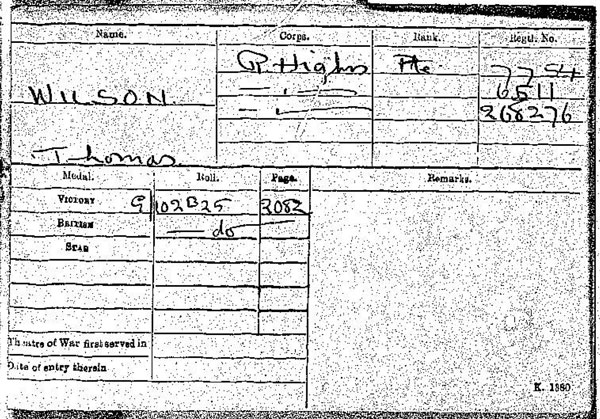 Name. Corps. Rank. Regtl. No.
R. Highrs Pte. 7754
WILSON — " — 6511
— " — 268276
Thomas
Medal. Roll. Page. Remarks.
VICTORY G 102B25 2082
BRITISH — do —
STAR
Theatre of War first served in
Date of entry therein
K. 1380